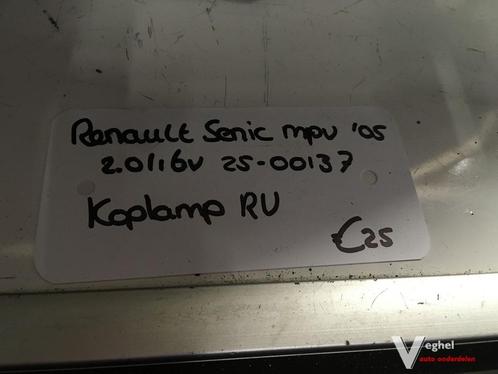 Renault Senic mpv '05
2.0/16v 25-00137
Koplamp RV
€25
Veghel
auto onderdelen